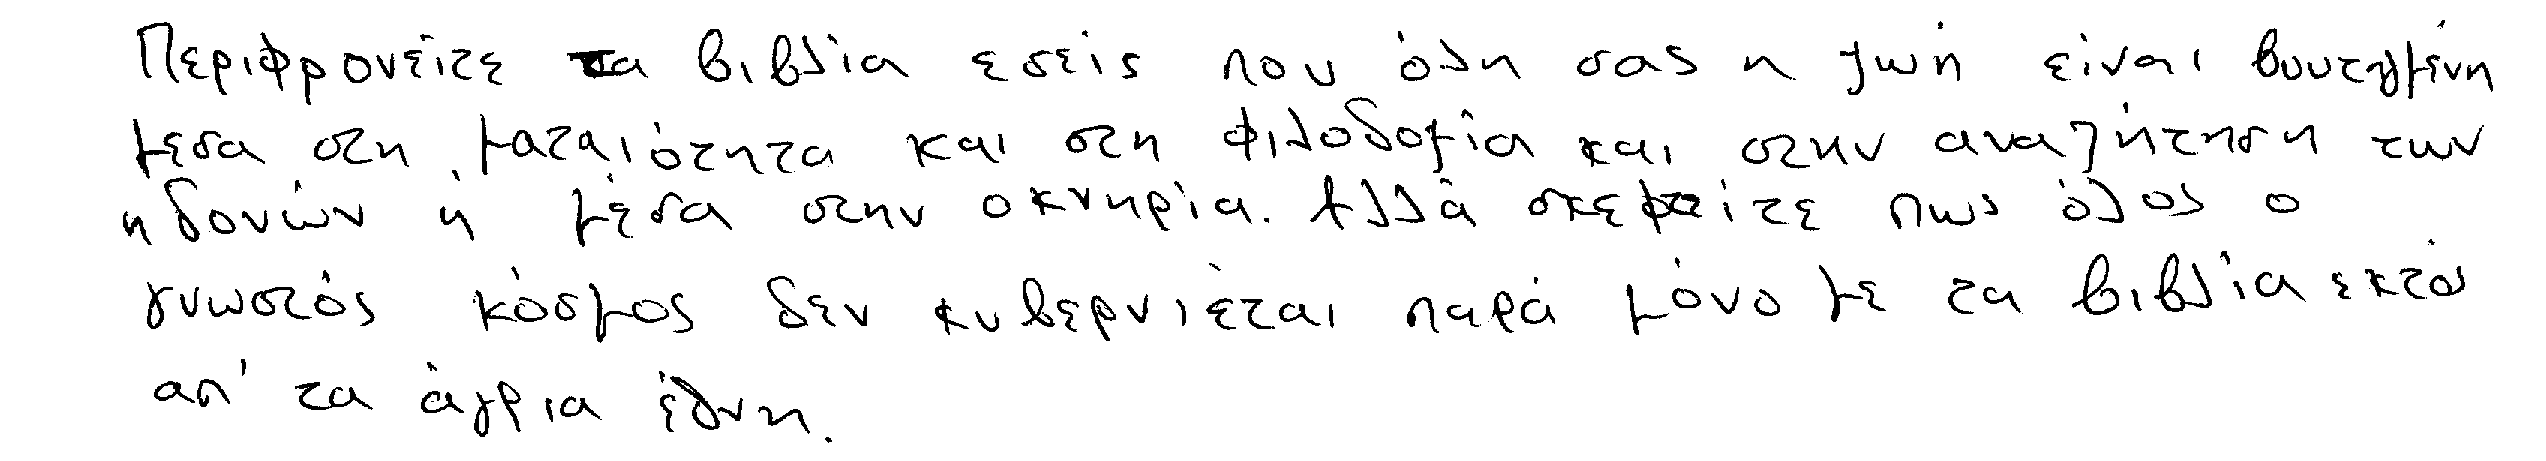 Περιφρονείτε τα βιβλία εσείς που όλη σας η ζωή είναι βουτηγμένη
μεσα στη ματαιότητα και στη φιλοδοξία και στην αναζήτηση των
ηδονών ή μέσα στην οκνηρία. Αλλά σκεφτείτε πως όλος ο
γνωστός κόσμος δεν κυβερνιέται παρά μόνο με τα βιβλία εκτός
απ' τα άγρια έθνη.